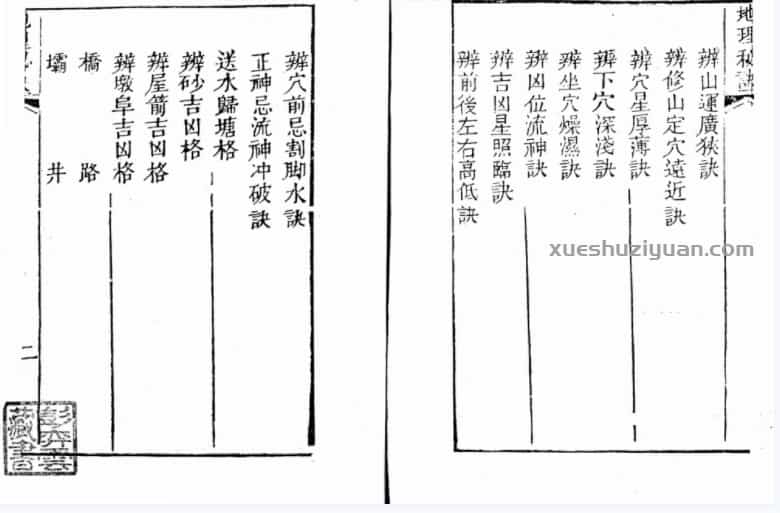 地理秘訣
辨山運廣狹訣
辨修山定穴遠近訣
辨穴星厚薄訣
辨下穴深淺訣
辨坐穴燥濕訣
辨凶位流神訣
辨吉凶星照臨訣
辨前後左右高低訣
xueshuziyuan.com
辨穴前忌割脚水訣
正神忌流神冲破訣
送水歸塘格
辨砂吉凶格
辨屋箭吉凶格
辨墩阜吉凶格
橋路
壩井
二
藏書